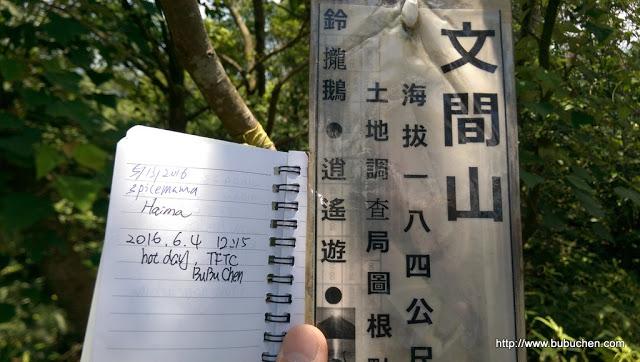 文間山
海拔一八四公尺
土地調查局圖根點
鈴攏鵝●逍遙遊●
5/13/2016
spicemama
Haima
2016.6.4 12:15
hot day, TFTC
BuBuChen
http://www.bubuchen.com